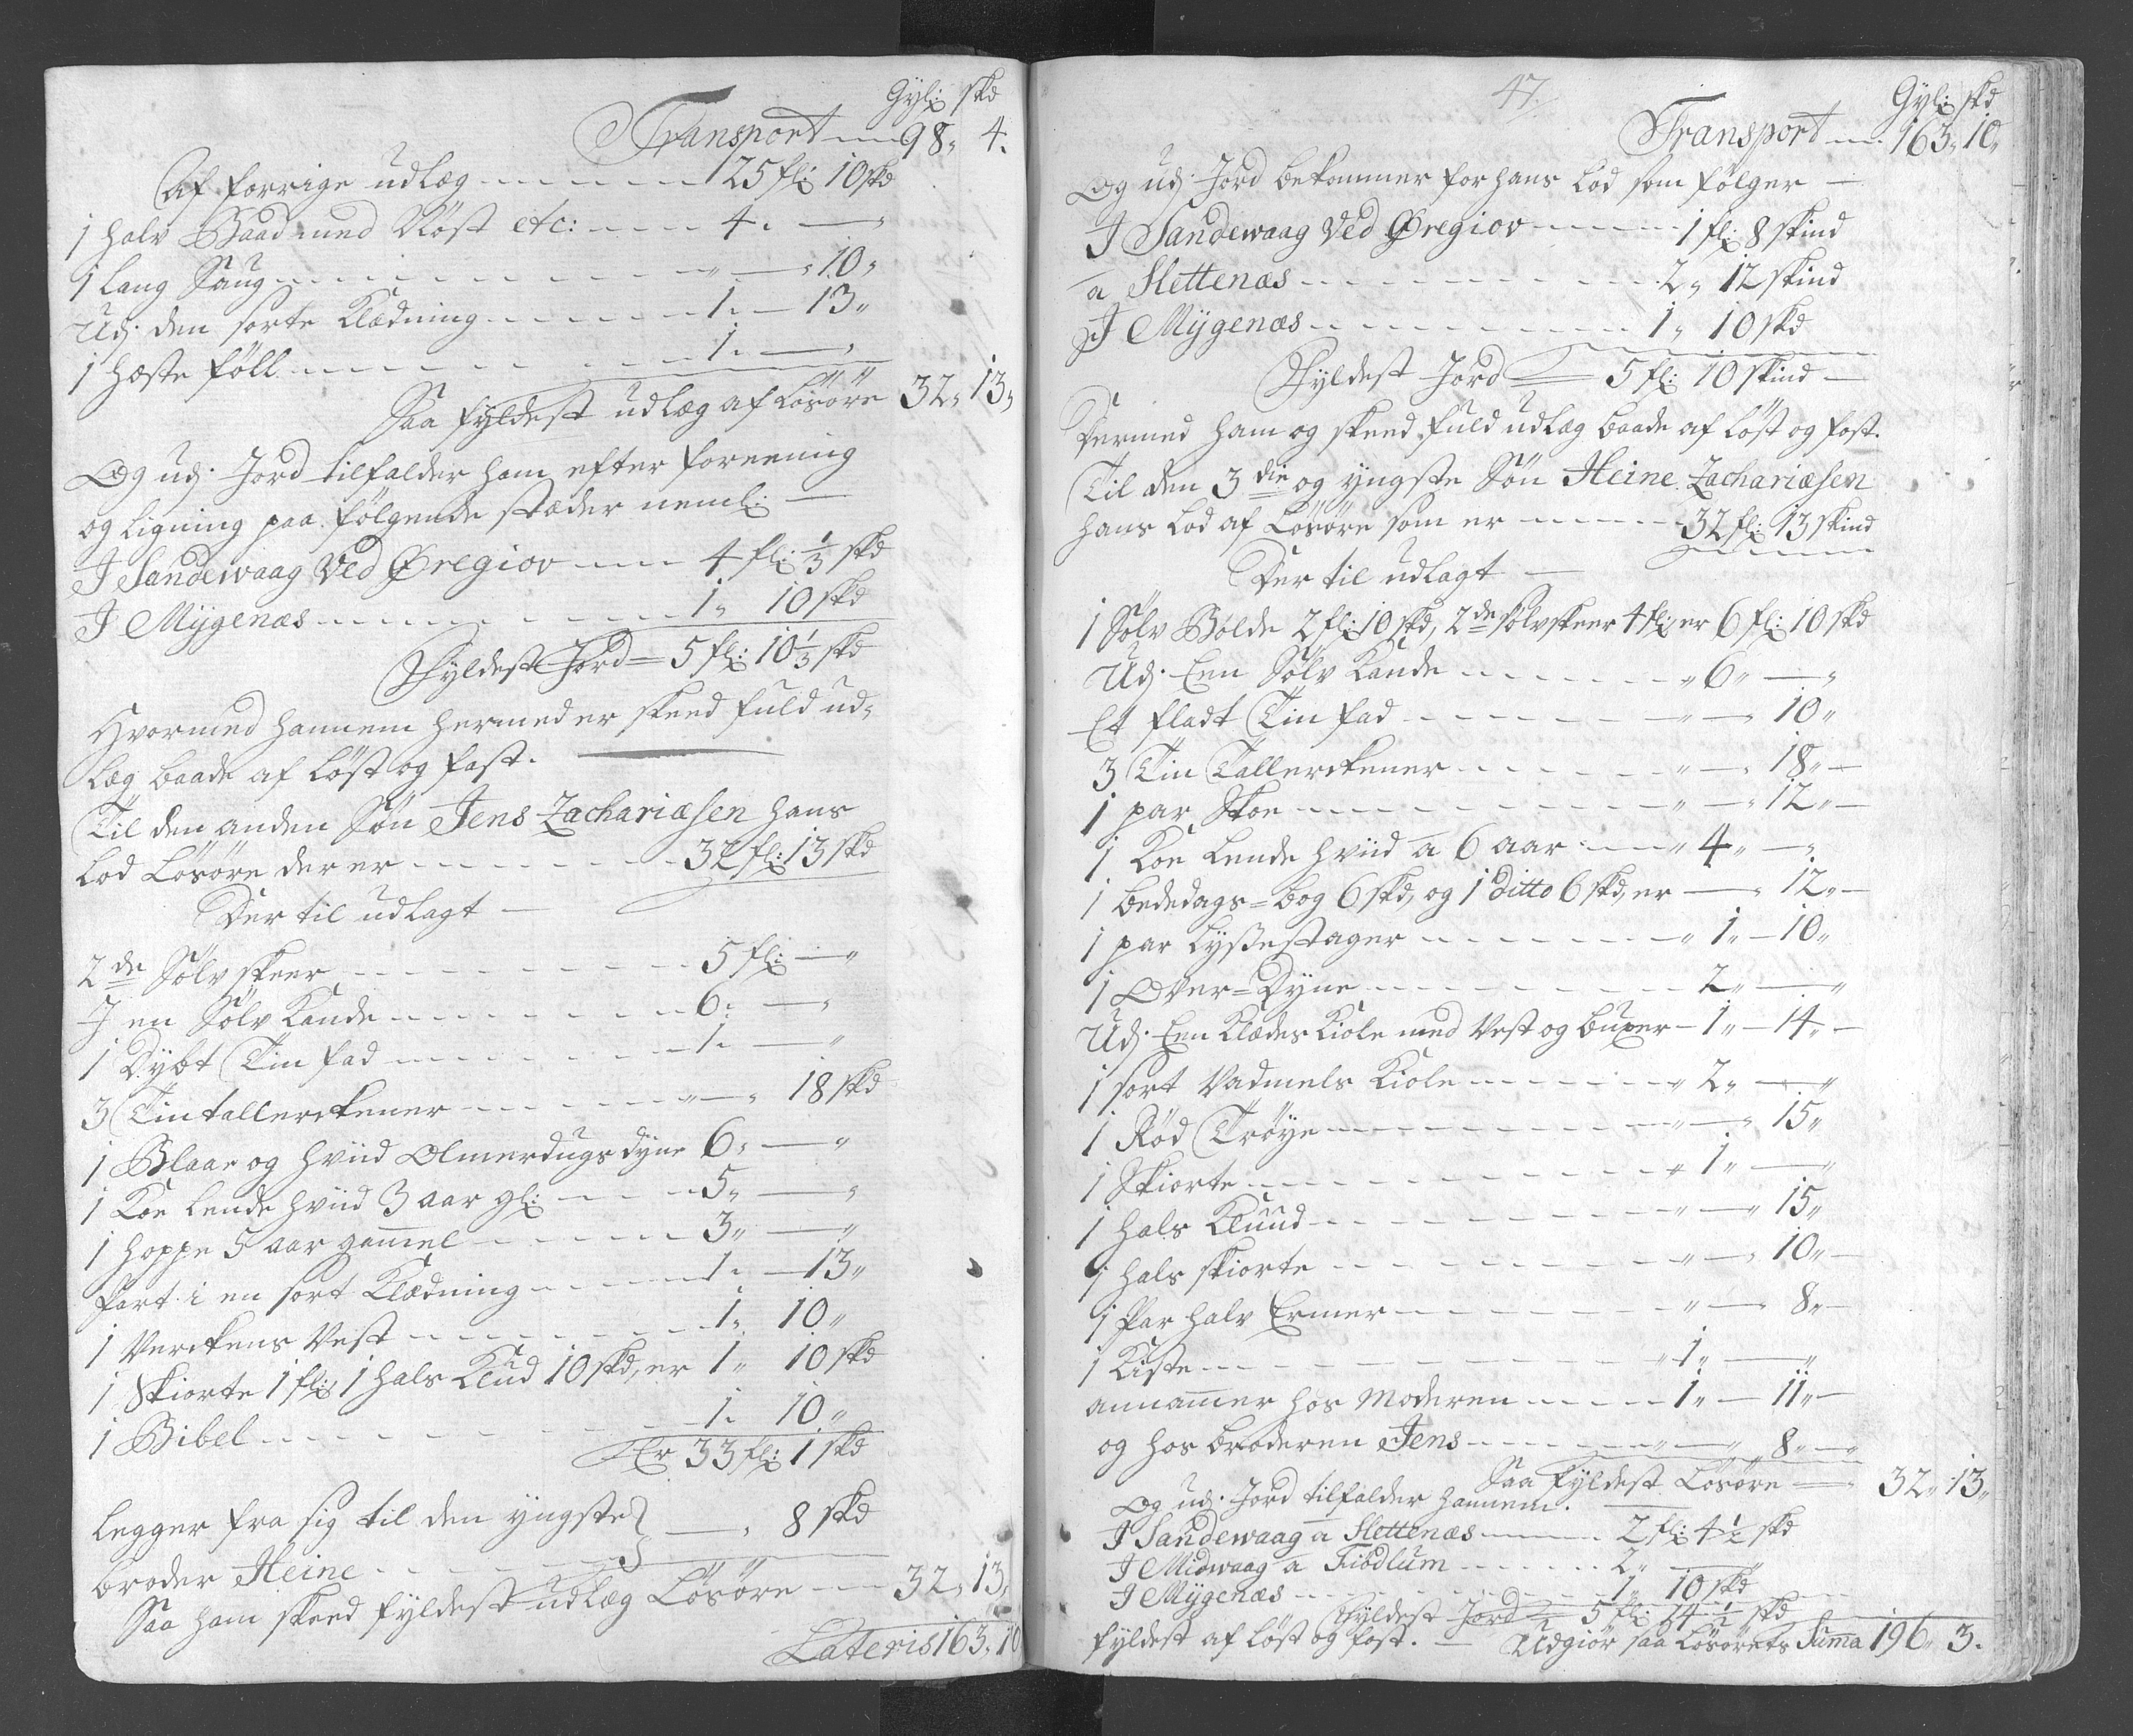 Gyl: skd
Transport 98„ 4.
Af forrige udlæg 25 fl: 10 skd
1 halv Baad med Nöst etc: 4. — „
1 lang Saug „ — „ 10„
Udj. den sorte Klædning 1. — 13„
1 hæste föll 1. — „
Saa fyldest udlæg af Lösöre 32„ 13„
Og udj. Jord tilfalder ham efter foreening
og ligning paa følgende stæder neml: —
J Sandewaag ved Øregiov 4 fl: 1/3 skd
J Mijgenæs 1„ 10 skd
Fyldest Jord = 5 fl: 10 1/3 skd
Hvormed hannem hermed er skeed fuld ud„
læg baade af löst og fast.
Til den anden Sön Jens Zachariæsen hans
Lod Lösöre der er 32 fl: 13 skd
Der til udlagt —
2de Sölv skeer 5 fl: — „
J en Sölv Kande 6. — „
1 Dybt Tin fad 1. — „
3 Tin tallerckener „ — „ 18 skd
1 Blaae og hviid Olmerdugs dyne 6„ — „
1 Koe lende hviid 3 aar gl: 5„ — „
1 hoppe 5 aar gammel 3„ — „
Part i en sort Klædning 1. — 13„
1 Verckens Vest 1„ 10„
1 Skiorte 1 fl: 1 hals Klud 10 skd, er 1„ 10 skd
1 Bibel 1. 10„
Er 33 fl: 1 skd
legger fra sig til den yngste
broder Heine — „ 8 skd
Saa ham skeed fyldest udlæg Lösöre 32„ 13„
Lateris 163„ 10
47.
Gyl: skd
Transport 163„ 10„
Og udj. Jord bekommer for hans Lod som følger —
J Sandewaag ved Øregiov 1 fl: 8 skind
a Slettenæs 2„ 12 skind
J Mijgenæs 1„ 10 skd
Fyldest Jord 5 fl: 10 skind —
Dermed ham og skeed fuld udlæg baade af löst og fast.
Til den 3die og yngste Sön Heine Zachariæsen
hans Lod af Lösöre som er 32 fl: 13 skind
Der til udlagt —
1 Sölv Bolde 2 fl: 10 skd, 2de sölvskeer 4 fl: er 6 fl: 10 skd
Udj. Een Sölv Kande „ 6„ — „
Et fladt Tin fad „ — 10„
3 Tin Tallerckener „ — „ 18„ —
1 par Skoe „ — „ 12„ —
1 Koe lende hviid a 6 aar „ 4„ — „
1 bededags = bog 6 skd, og 1 ditto 6 skd, er — „ 12„ —
1 par lyßestager „ 1„ — 10„
1 Over = Dyne 2„ — „
Udj. Een Klædes Kiole med Vest og buxer — 1„ — 14„ —
1 sort Vadmels Kiole „ 2„ — „
1 Röd Tröye „ — „ 15„
1 Skiorte „ 1„ — „
1 hals Kluud „ — „ 15„
1 hals skiorte „ — „ 10„ —
1 Par halv Ermer „ — „ 8„ —
1 Kiste „ 1„ — „
annamer hos Moderen 1„ — 11„ —
og hos broderen Jens „ — „ 8„ — „
Saa fyldest Lösöre — 32„ 13„
Og udj. Jord tilfalder hannem.
J Sandewaag a Slettenæs 2 fl: 4 1/2 skd
J Midwaag a Fiödlum 2„ — „
J Mijgenæs 1„ 10 skd
Fyldest Jord = 5 fl: 14 1/2 skd
fyldest af löst og fast. — Udgiör saa Lösörets Suma 196„ 3.